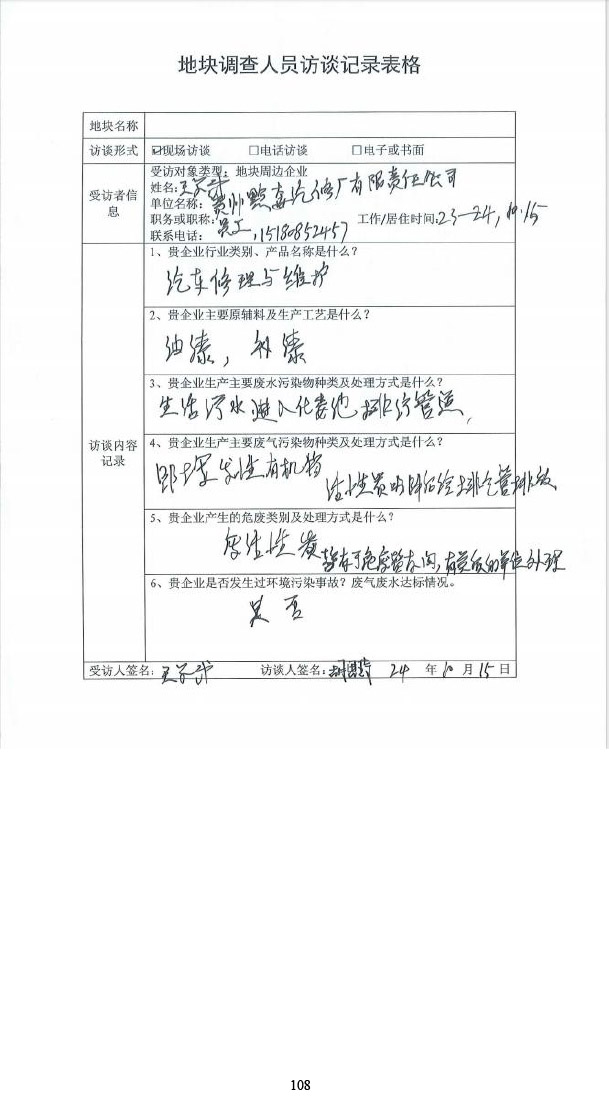 地块调查人员访谈记录表格
地块名称
访谈形式 ☑现场访谈 □电话访谈 □电子或书面
受访者信息
受访对象类型：地块周边企业
姓名：王
单位名称：贵州黔 汽修厂有限责任公司
职务或职称：员工 工作/居住时间：23-24，10.15
联系电话：15180852457
访谈内容记录
1、贵企业行业类别、产品名称是什么？
汽车修理与维护
2、贵企业主要原辅料及生产工艺是什么？
油漆，补漆
3、贵企业生产主要废水污染物种类及处理方式是什么？
生活污水进入化粪池排污管道
4、贵企业生产主要废气污染物种类及处理方式是什么？
发性有机物
活性炭吸附后经排气管排放
5、贵企业产生的危废类别及处理方式是什么？
废活性炭
暂存于危废暂存间，有资质的单位处理
6、贵企业是否发生过环境污染事故？废气废水达标情况。
是 否
受访人签名：王 访谈人签名：胡 24 年 10 月 15 日
108